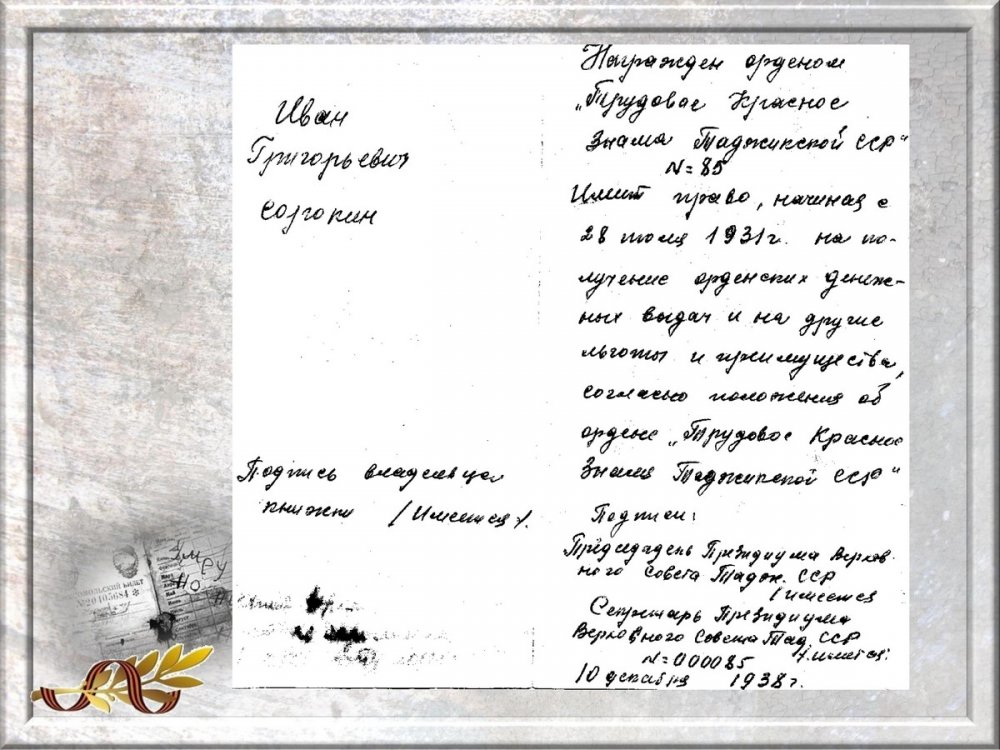 Иван
Григорьевич
Сорокин
Подпись владельца
книжки /Имеется/.
Награжден орденом
„Трудовое Красное
Знамя Таджикской ССР"
N=85
Имеит право, начиная с
28 июля 1931г. на по-
лучение орденских денеж-
ных выдач и на другие
льготы и преимущества,
согласно положения об
ордене „Трудовое Красное
Знамя Таджикской ССР"
Подписи:
Председатель Президиума Верхов-
ного Совета Тадж. ССР
/имеется
Секретарь Президиума
Верховного Совета Тад. ССР
N=000085 /имеется.
10 декабря 1938г.
КОМСОМОЛЬСКИЙ БИЛЕТ
№20405684